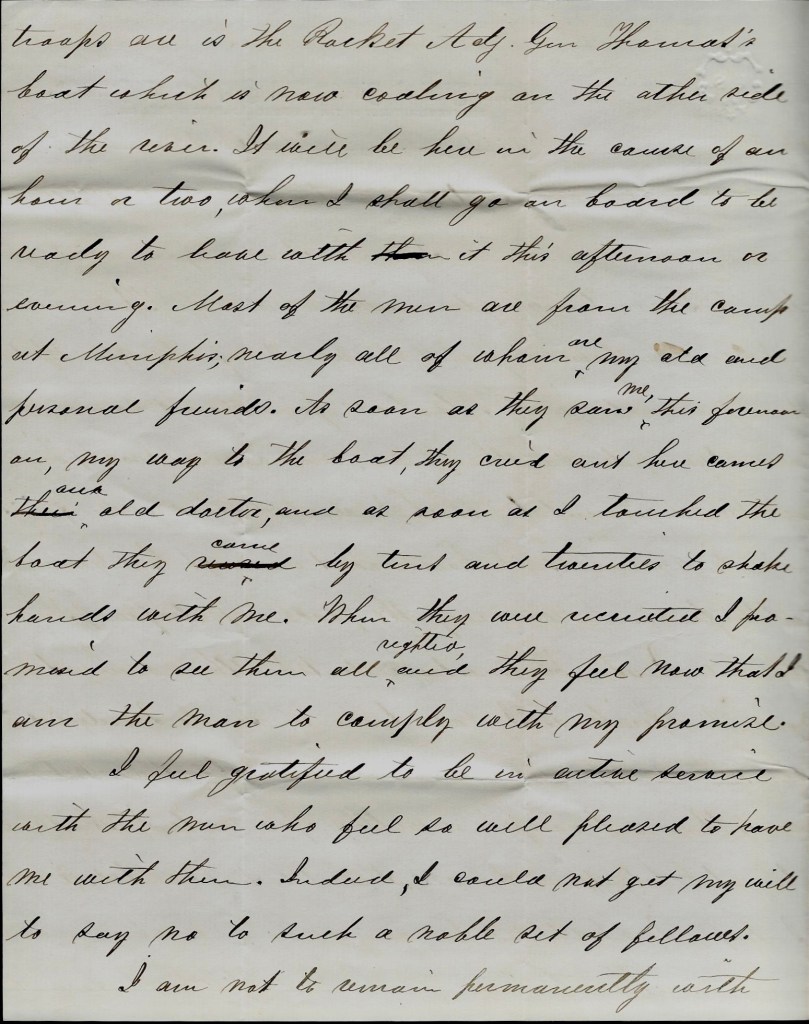 troops are is the Rocket Adj. Gen Thomas's
boat which is now coaling on the other side
of the river. It will be here in the course of an
hour or two, when I shall go on board to be
ready to leave with them it this afternoon or
evening. Most of the men are from the camp
at Memphis; nearly all of whom are my old and
personal friends. As soon as they saw me, this forenoon
on, my way to the boat, they cried out here comes
their our old doctor, and as soon as I touched the
boat they came by tens and twenties to shake
hands with me. When they were recruited I pro-
mised to see them all righted, and they feel now that I
am the man to comply with my promise.
I feel gratified to be in active service
with the men who feel so well pleased to have
me with them. Indeed, I could not get my will
to say no to such a noble set of fellows.
I am not to remain permanently with